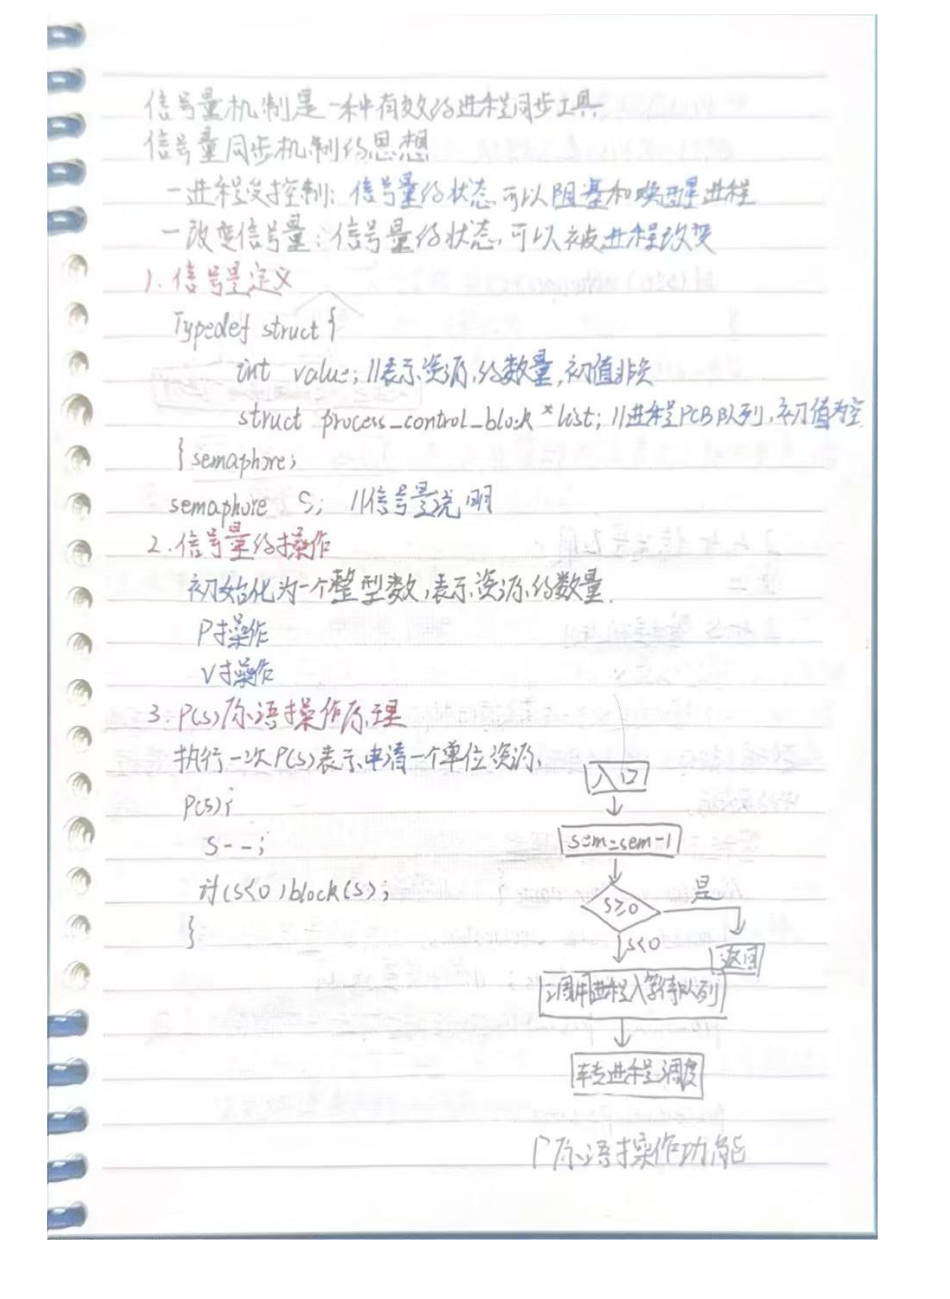 信号量机制是一种有效的进程同步工具
信号量同步机制的思想
一进程受控制: 信号量的状态可以阻塞和唤醒进程
一改变信号量: 信号量的状态可以被进程改变
1. 信号量定义
Typedef struct {
int value; //表示资源的数量,初值非负
struct process_control_block *list; //进程PCB队列,初值为空
} semaphore;
semaphore S; //信号量说明
2. 信号量的操作
初始化为一个整型数,表示资源的数量.
P操作
V操作
3. P(s)原语操作原理
执行一次P(s)表示申请一个单位资源.
P(s){
S--;
if(s<0)block(s);
}
入口
sem=sem-1
s≥0
是
s<0
返回
调用进程入等待队列
转进程调度
P原语操作功能